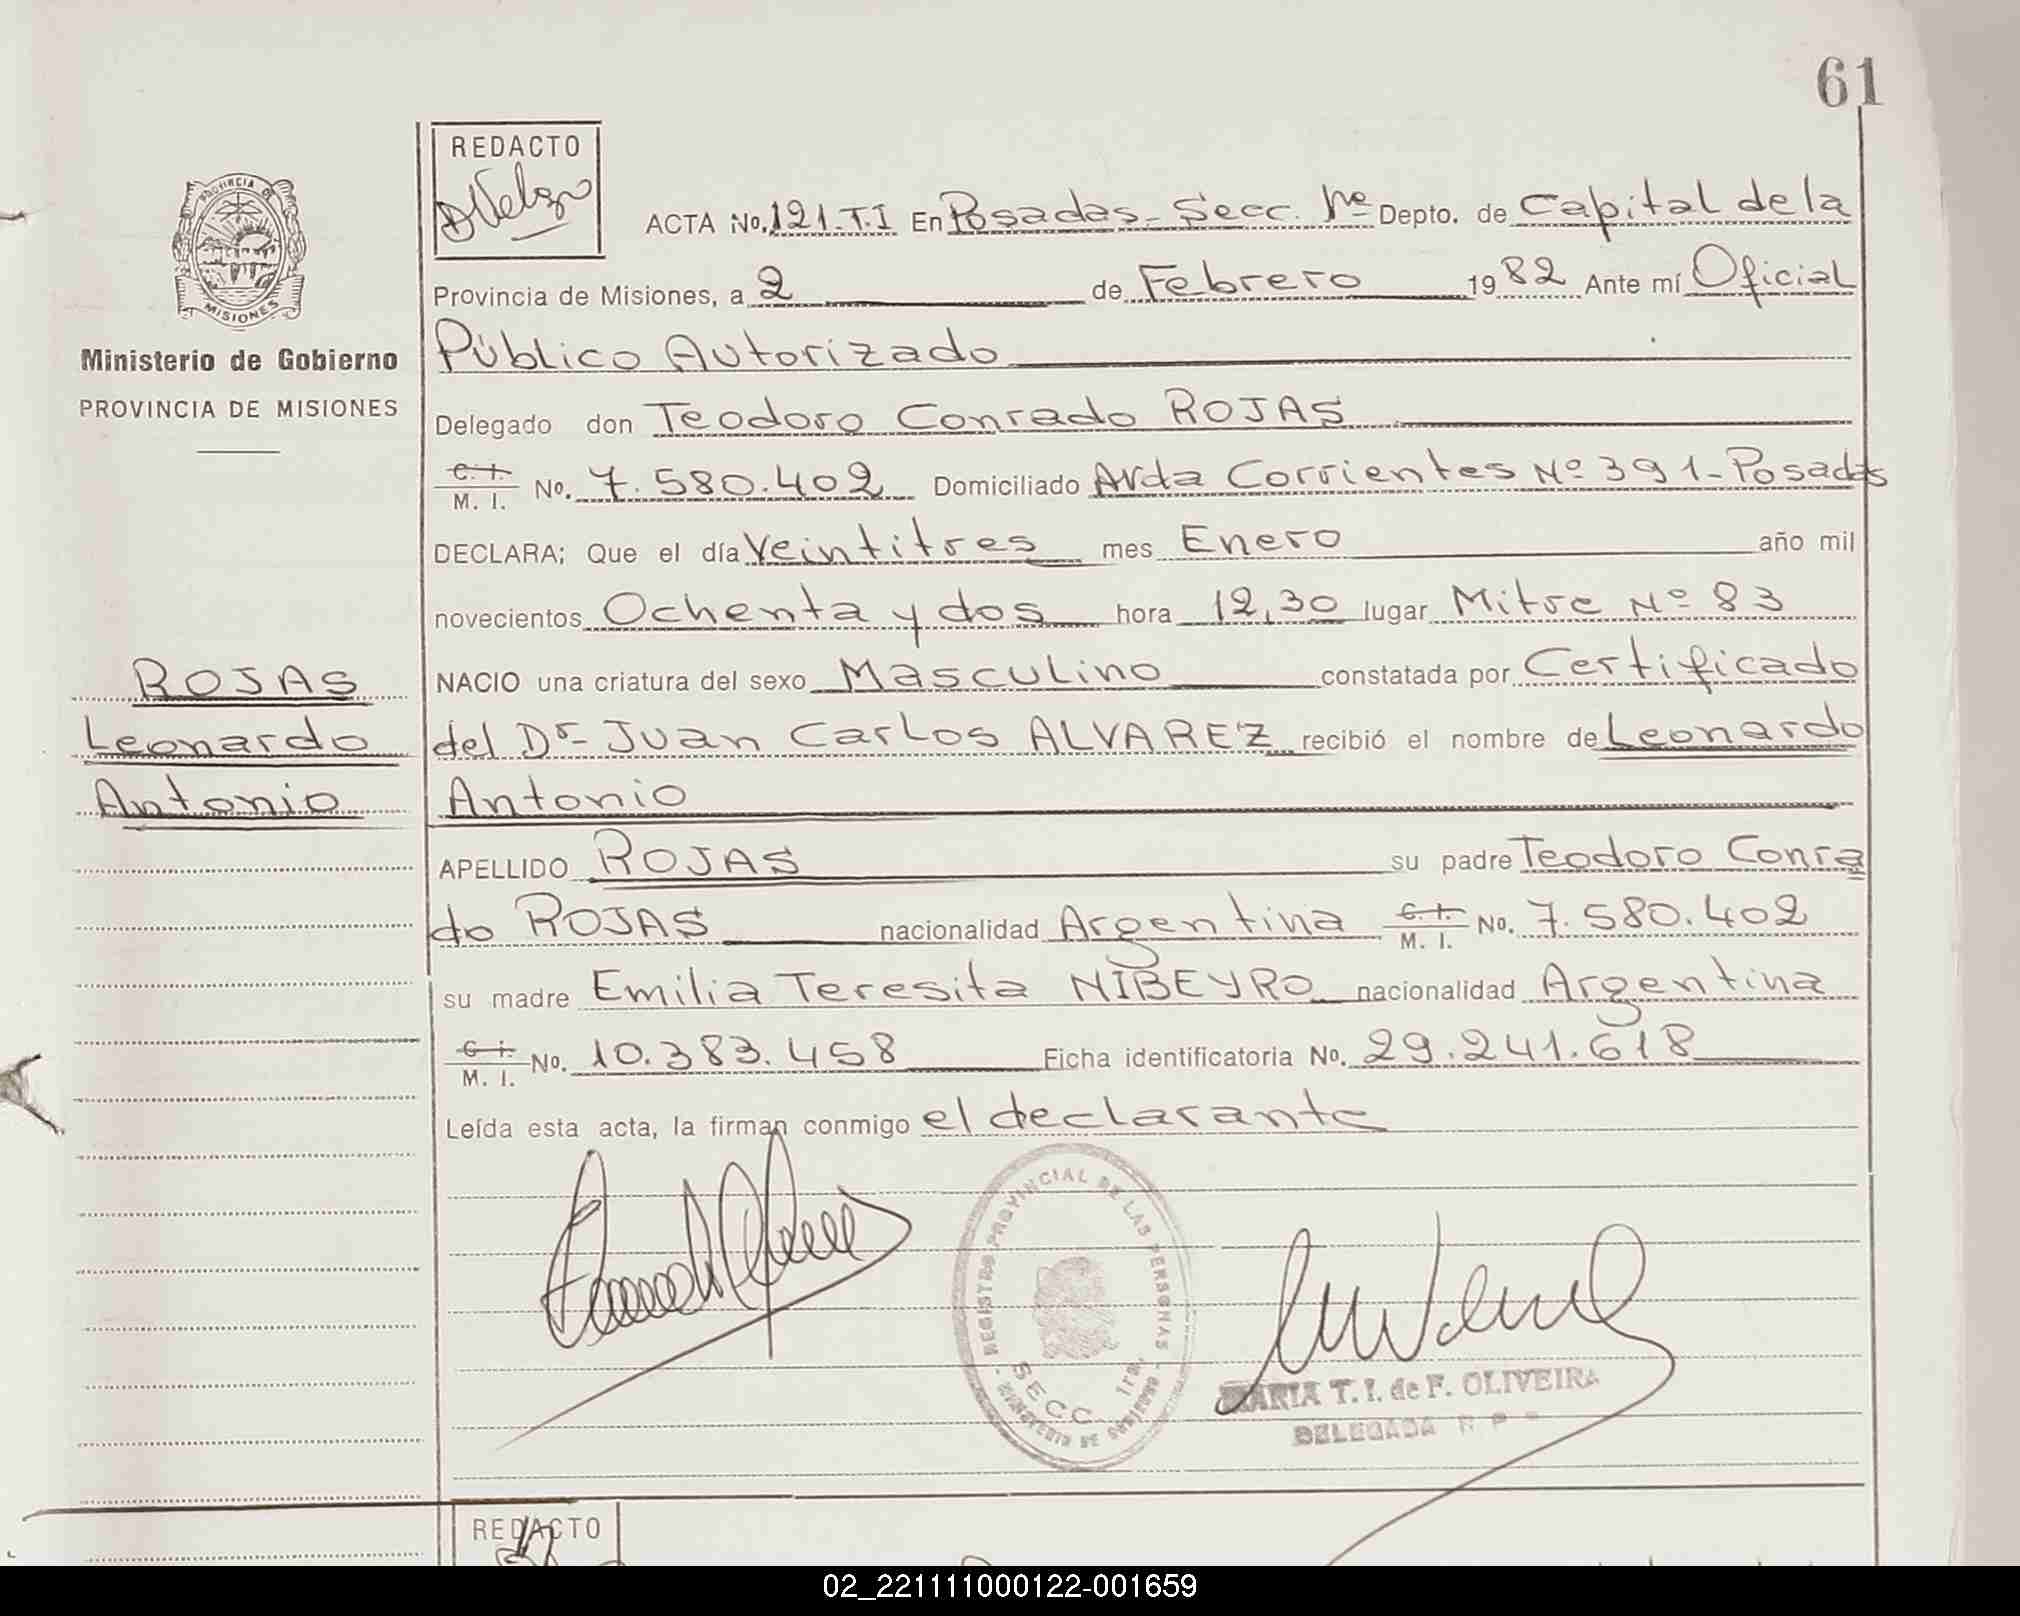 61
REDACTO
PROVINCIA DE
MISIONES
Ministerio de Gobierno
PROVINCIA DE MISIONES
ACTA No. 121.T.I En Posadas - Secc. 1ra Depto. de Capital de la
Provincia de Misiones, a 2 de Febrero 1982 Ante mí Oficial
Público Autorizado
Delegado don Teodoro Conrado ROJAS
C. I. M. I. No. 7.580.402 Domiciliado Avda Corrientes Nº 391 - Posadas
DECLARA; Que el día Veintitres mes Enero año mil
novecientos Ochenta y dos hora 12,30 lugar Mitre Nº 83
NACIO una criatura del sexo Masculino constatada por Certificado
del Dr. Juan Carlos ALVAREZ recibió el nombre de Leonardo
Antonio
ROJAS
Leonardo
Antonio
APELLIDO ROJAS su padre Teodoro Conra
do ROJAS nacionalidad Argentina C. I. M. I. No. 7.580.402
su madre Emilia Teresita NIBEYRO nacionalidad Argentina
C. I. M. I. No. 10.383.458 Ficha identificatoria No. 29.241.618
Leída esta acta, la firman conmigo el declarante
REGISTRO PROVINCIAL DE LAS PERSONAS
SECC. 1ra.
MINISTERIO DE GOBIERNO
MARIA T. I. de F. OLIVEIRA
DELEGADA R P
REDACTO
02_221111000122-001659